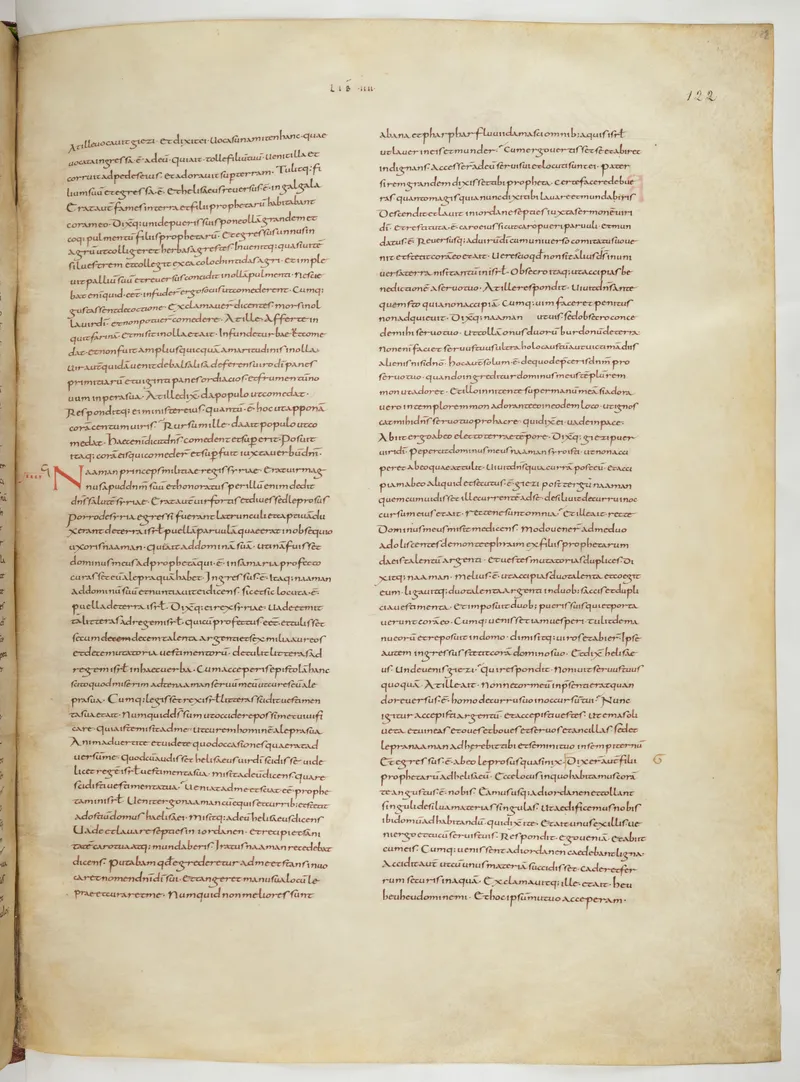 LIB · IIII ·
122
At ille uocauit giezi · Et dixit ei · Uoca sunamiten hanc · quae
uocata ingressa ē adeū · quiait · tolle filiū tuū · Uenit illa et
corruit adpedes eius · et adorauit sup terram · Tulitq; fi
lium suū et egressa · ē · Et heliseus reuersus · ē · ingalgala
Erat aut̄ fames interra et filii prophetarū habitabant
coram eo · Dixitq; uni de pueris suis pone ollā grandem et
coq; pulmentū filiis prophetarū · Et egressus unus in
agrū ut colligeret herbas agrestes · Inuenitq; quasi uitē
siluestrem et collegit ex ea colochintidas agri · Et imple
uit palliū suū et reuersus concidit in ollā pulmenti · Nescie
bat eni quid eet · infuder̄ ergo sociis ut comederent · Cumq;
gustassent de coctione · Exclamauer̄ dicentes · mors in ol
la uir dī · et non potuer̄ comedere · At ille · Afferte in
quit farinā · Et misit in olla et ait · Infunde turbae ut come
dat · et non fuit amplius quicquā amaritudinis in olla ·
Uir aut̄ quidā uenit de balsalisa deferens uiro dī panes
primitiarū et uiginti panes ordiacios et frumentū no
uum in pera sua · At ille dix̄ · da populo ut comedat ·
Respondit q; ei minister eius · quantū · ē · hoc ut apponā
corā centum uiris · Rursum ille · da ait populo ut co
medat · haec enī dicit dn̄s · comedent et superit · Posuit
itaq; corā eis qui comeder̄ et supfuit iuxta uerbū dn̄i ·
Naaman princeps militiae regis syriae · Erat uir mag
nus apud dn̄m suū et honoratus · per illū enim dedit
dn̄s salutē syriae · Erat aut̄ uir fortis et diues sed leprosus
porro de syria egressi fuerant latrunculi et captiuā du
xerant de terra isrl̄ puellā paruulā quae erat in obsequio
uxoris naaman · quae ait ad dominā suā · Utinā fuisset
dominus meus ad prophetā qui · ē · in samaria profecto
curasset eū a lepra quā habet · Ingressus · ē · itaq; naaman
ad dominū suū et nuntiauit ei dicens · sic et sic locuta · ē ·
puella de terra isrl̄ · Dixitq; ei rex syriae · Uade et mit
tā litteras ad regem isrl̄ · qui cū profectus eet · et tulisset
secum decem talenta argenti et sex milia aureos
et decem mutatoria uestimentorū · detulit litteras ad
regem isrl̄ in haec uerba · Cum acceperis epistolā hanc
scito quod miserim ad te naaman seruū meū ut cures eū a le
pra sua · Cumq; legisset rex isrl̄ litteras scidit uestimen
ta sua et ait · Numquid ds̄ sum ut occidere possim et uiuifi
care · quia iste misit ad me · ut curem hominē a lepra sua ·
Animaduertite et uidete quod occasiones quaerat ad
uersū me · quod cū audisset heliseus uir dī scidisse uide
licet regē isrl̄ uestimenta sua · misit ad eū dicens quare
scidisti uestimenta tua · Ueniat ad me et sciat eē prophe
tam in isrl̄ · Uenit ergo naaman cū equis et curribus et stetit
ad ostiū domus helisei · Misitq; ad eū heliseus dicens
Uade et lauare septies in iordanen · Et recipiet sani
tatē caro tua atq; mundaberis · Iratus naaman recedebat
dicens · putabam qd egrederetur ad me et stans inuo
caret nomen dn̄i dī sui · Et tangeret manu sua locū le
prae et curaret me · Numquid non meliores sunt
abana et pharphar fluui damasci omnib; aquis isrl̄
ut lauer in eis et munder · Cum ergo uertisset sē et abiret
indignans Accesser̄ ad eū serui sui et locuti sunt ei · pater
si rem grandem dixisset tibi propheta · Certe facere debue
ras quanto magis quia nunc dixit tibi lauare et mundaberis
Descendit et lauit in iordane septies iuxta sermonē uiri
dī · Et restituta · ē · caro eius sicut caro pueri paruuli · et mun
datus · ē · Reuersusq; ad uirū dī cum uniuerso comitatu suo ue
nit et stetit corā eo et ait · Uere scio qd non sit alius ds̄ in uni
uersa terra nisi tantū in isrl̄ · Obsecro itaq; ut accipias be
nedictionē a seruo tuo · At ille respondit · Uiuit dn̄s ante
quem sto quia non accipiā · Cumq; uim faceret penitus
non adquieuit · Dixitq; naaman ut uis · sed obsecro conce
de mihi seruo tuo · Ut tollā onus duorū burdonū de terra ·
Non enī faciet seruus tuus ultra holocaustū aut uictimā diis
alienis nisi dn̄o · hoc aut̄ solum · ē · de quo depceris dn̄m pro
seruo tuo · quando ingredietur dominus meus templū rem
mon ut adoret · Et illo innitente super manū meā si adora
uero in templo remmon adorante eo in eodem loco · ut ignos
cat mihi dn̄s seruo tuo pro hac re · qui dixit ei · uade in pace ·
Abiit ergo ab eo electo terrae tēpore · Dixitq; giezi puer
uiri dī · Pepercit dominus meus naaman syro isti · ut non acci
peret ab eo quae attulit · Uiuit dn̄s quia currā post eū · et acci
piam ab eo aliquid et secutus · ē · giezi post tergū naaman
quem cum uidisset ille currentē ad sē · desiliuit de curru in oc
cursum eius et ait · Recte ne sunt omnia · Et ille ait · recte
Dominus meus misit me dicens · Modo uener̄ ad me duo
adoliscentes de monte ephraim ex filiis prophetarum
da eis talentū argenti · Et uestes mutatorias duplices · Di
xitq; naaman · Melius · ē · ut accipias duo talenta · et coegit
eum · ligauitq; duo talenta argenti in duob; saccis et dupli
cia uestimenta · Et imposuit duob; pueris suis qui et porta
uerunt corā eo · Cumq; uenisset iam uesperi · Tulit de ma
nu eorū et reposuit in domo · dimisitq; uiros et abier̄ · Ipse
autem ingressus stetit corā domino suo · Et dix̄ helise
us · Unde uenis giezi · Qui respondit · Non iuit seruus tuus
quoquā · At ille ait · Non ne cor meū in psenti erat quan
do reuersus · ē · homo de curru suo in occursū tui · Nunc
igitur accepisti argentū · Et accepisti uestes · Ut emas oli
ueta · et uineas et oues et boues et seruos et ancillas sed et
lepra naaman adherebit tibi et semini tuo in sempiternū
Et egressus · ē · ab eo leprosus quasi nix · Dixer̄ aut̄ filii
prophetarū ad heliseū · Ecce locus in quo habitamus corā
te angustus · ē · nobis · Eamus usq; ad iordanen et tollant
singuli de silua materias singulas · Ut aedificemus nobis
ibi domū ad habitandū · qui dixit ite · Et ait unus ex illis · ue
ni ergo et tu cū seruis tuis · Respondit · ego ueniā · Et abiit
cum eis · Cumq; uenissent ad iordanen caedebant ligna ·
Accidit aut̄ ut cū unus materiā succidisset · caderet fer
rum securis in aquā · Exclamauitq; ille · et ait · heu
heu heu domine mi · Et hoc ipsum mutuo acceperam ·